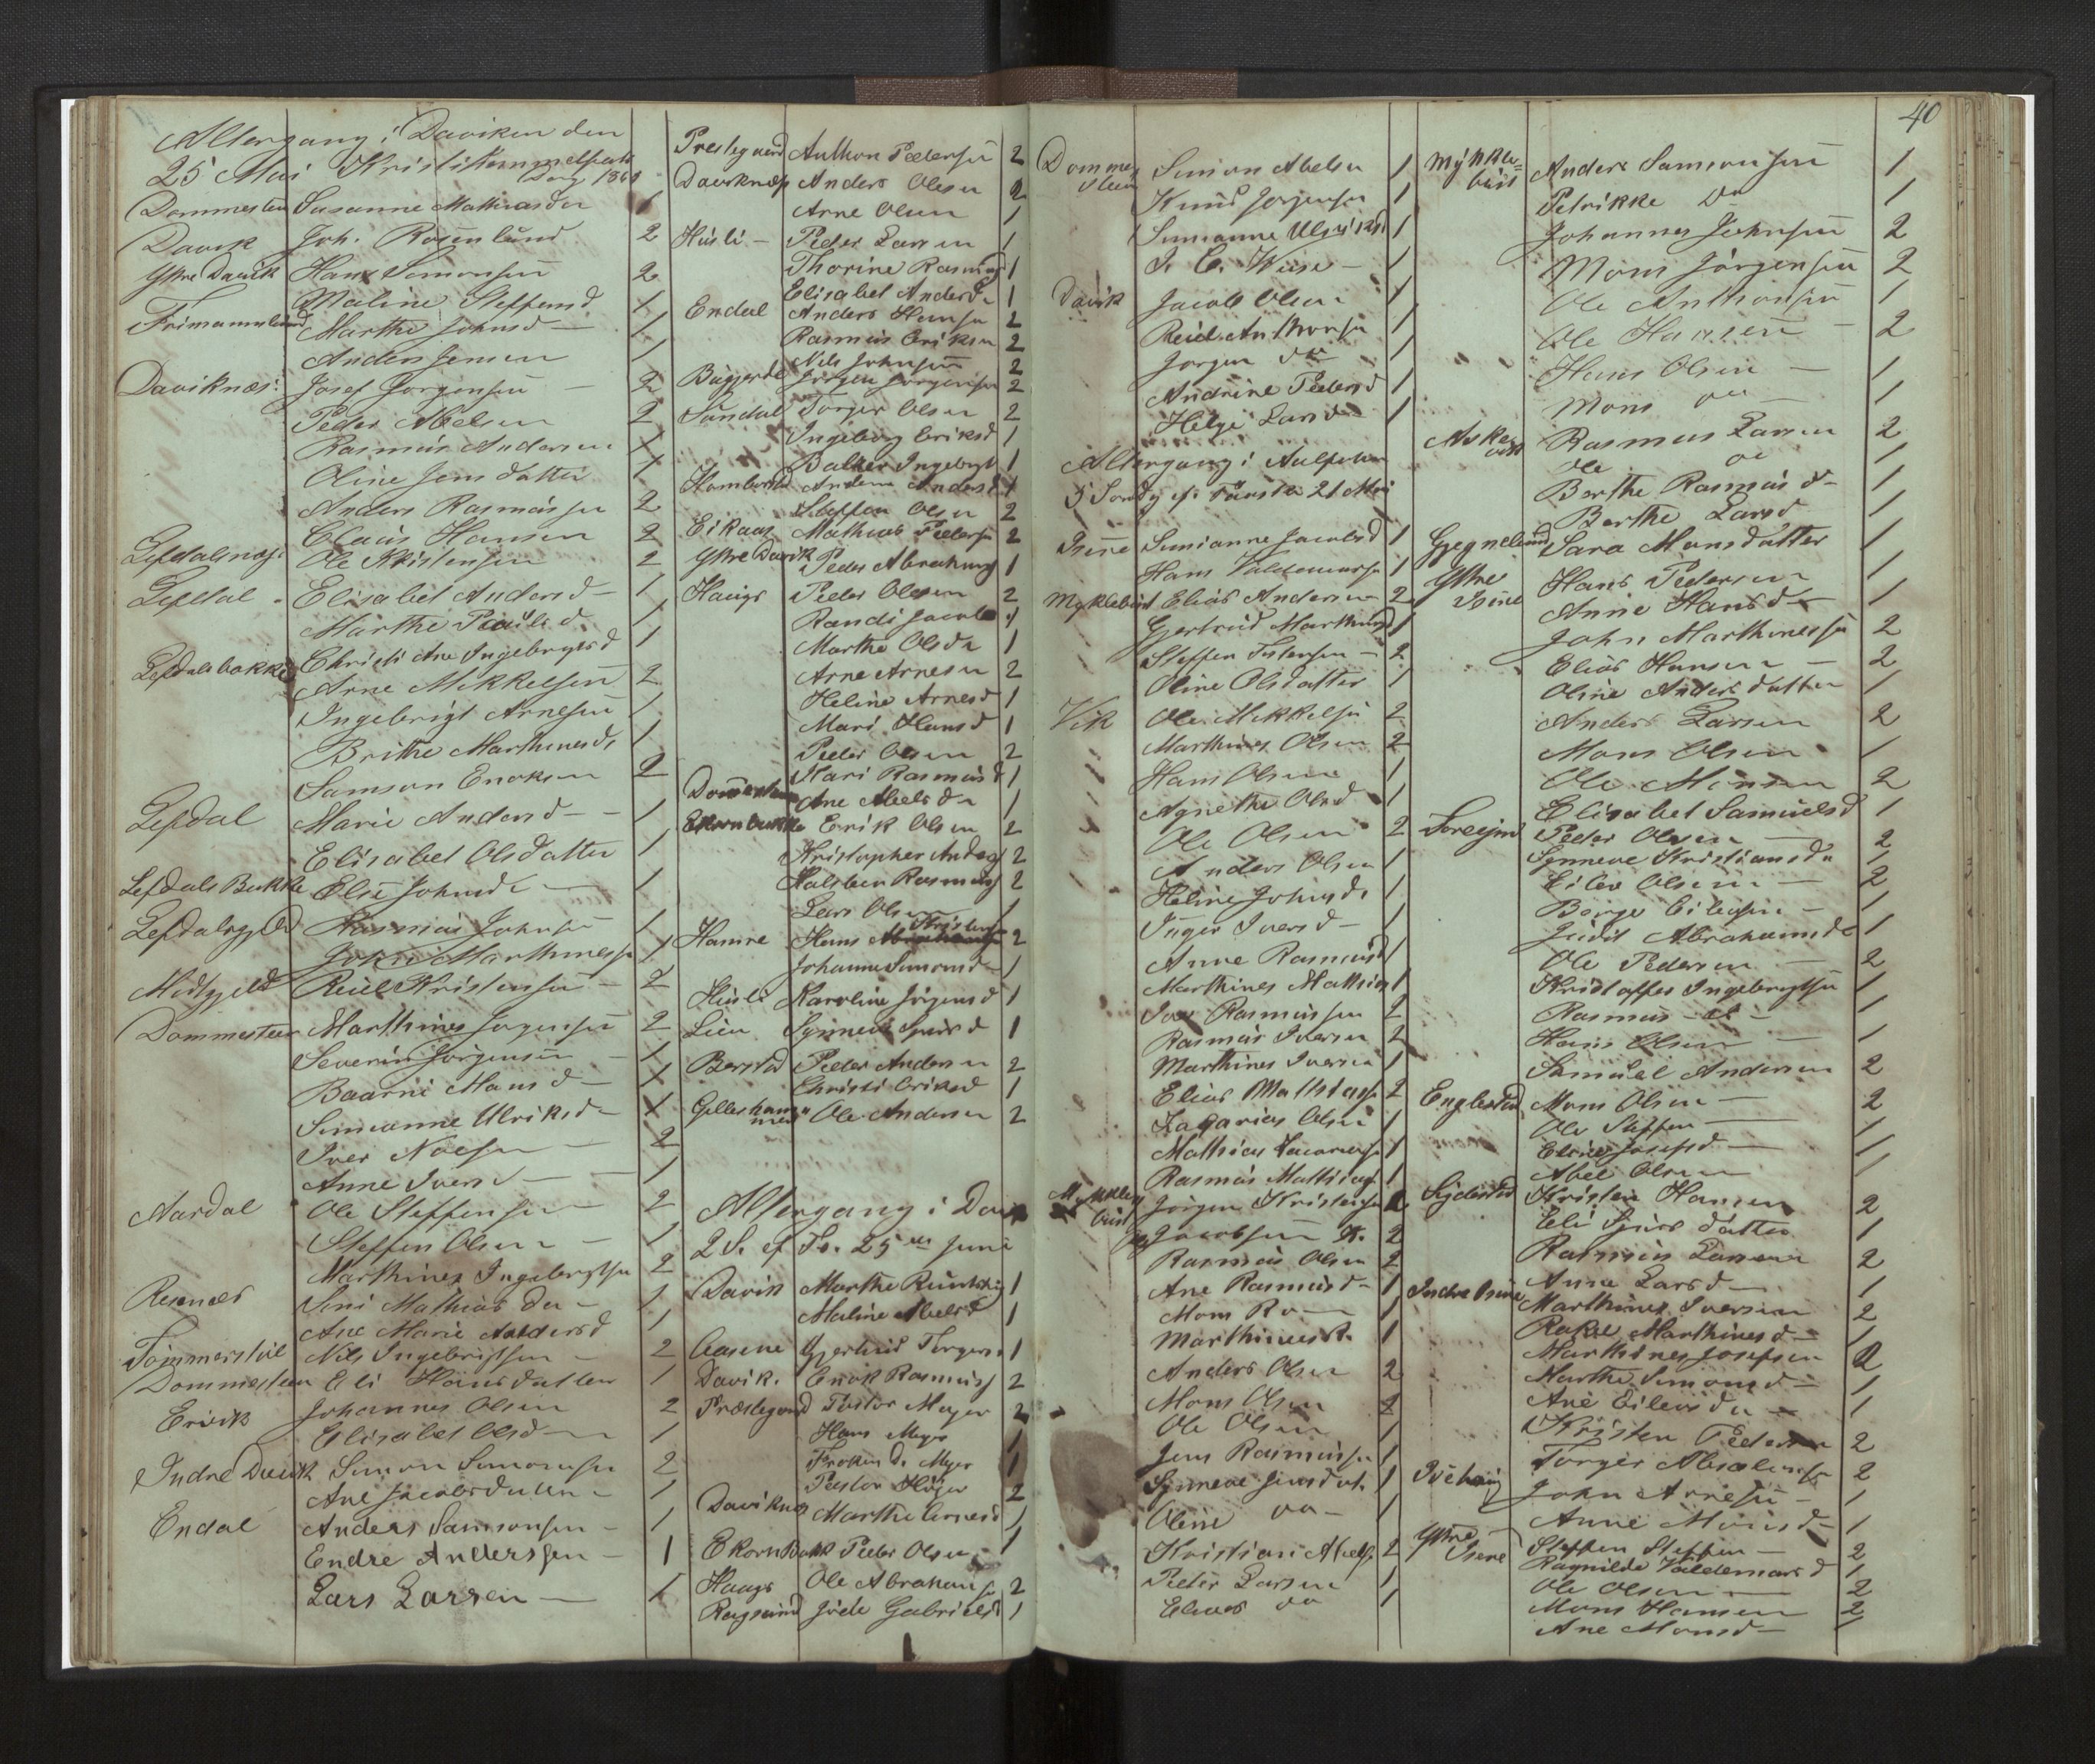 Altergang i Daviken den
25 Mai Kristi Himmelfarts
Dag 1868
Dommesten Susanne Mathiasdtr 1
Davik Joh. Rosenlund 2
Ytre Davik Hans Simonsen 2
Maline Steffensd 1
Frimannslund Marthe Johnsd 1
Anders Jensen 1
Daviknæs Josef Jørgensen 2
Peder Abelsen 2
Rasmus Andersen 1
Oline Jensdatter 1
Anders Rasmussen 2
Claus Hansen 2
Lefdalsnæs Ole Kristensen 2
Lefdal Elisabet Andersd 1
Marthe Paulsd 1
Christi Ane Ingebrigtsd 1
Lefdalsbakke Arne Mikkelsen 2
Ingebrigt Arnesen 1
Brithe Marthinesd 1
Samson Enoksen 2
Lefdal Marie Andersd 1
Elisabet Olsdatter 1
Lefdals Bakke Else Johnsd 1
Lefdalsgjeld Rasmus Johnsen 1
John Marthinessen 1
Midtgjeld Reiel Kristensen 2
Dommesteen Marthines Jørgensen 2
Severin Jørgensen 1
Baarni Monsd 1
Simianne Ulriksd 1
Iver Noesen 2
Anne Iversd 1
Aardal Ole Steffensen 2
Steffen Olsen 1
Marthines Ingebrigtsen 2
Resnæs Sini Mathiasdtr 1
Ane Marie Andersd 1
Tømmerstøl Nils Ingebrigtsen 2
Dommesteen Eli Hansdatter 1
Ervik Johannes Olsen 2
Elisabet Olsd 1
Indre Davik Simon Simonsen 2
Ane Jacobsdatter 1
Endal Anders Samsonsen 1
Endre Anderssen 1
Lars Larsen 1
Prestegaard Anthon Pedersen 2
Daviknæs Anders Olsen 2
Arne Olsen 1
Husli Peder Larsen 1
Thorine Rasmusd 1
Elisabet Andersd 1
Endal Anders Hansen 2
Rasmus Eriksen 2
Nils Johnsen 2
Buggerde Jørgen Jørgensen 2
Sundal Torger Olsen 2
Ingeborg Eriksd 1
Balter Ingebrigt 1
Hamborstd Anderine Andersd 1
Steffen Olsen 2
Eikaas Mathias Pedersen 2
Ytre Davik Peder Abrahams 1
Haugs Peder Olsen 2
Randi Jacobsd 1
Marthe Olsdr 1
Arne Arnesen 2
Heline Arnesd 1
Mari Hansd 1
Peder Olsen 2
Kari Rasmusd 1
Dommesteen Ane Abelsdr 1
Ekornbakke Erik Olsen 2
Kristopher Anders 2
Halsten Rasmus 2
Lars Olsen 1
Hamre Hans Kristens 2
Johanne Simonsd 1
Husli Karoline Jørgensd 1
Lien Synneve Sjursd 1
Berstad Peder Andersen 2
Christi Eriksd 1
Gilleshammer Ole Andersen 2
Altergang i Davik
2 S. ef Tr. 25de Juni
Davik Marthe Rund 1
Maline Abelsd 1
Aasene Gjertrud Torgers 1
Davik. Enok Rasmus 2
Præstegaard Pastor Meyer 2
Hans Meyer 1
Frøken D. Meyer 1
Pastor Høyer 2
Daviknæs Marthe Arnesd 1
Ekornbakk Peder Olsen 1
Haugs Ole Abrahamsen 2
Rugsund Jøde Gabrielsd 1
40
Dommesteen Simon Abelsen 1
Knud Jørgensen 1
Simianne Ulriksd 1
J. C. Wiese 1
Davik Jacob Olsen 1
Reiel Anthonsen 1
Jørgen do 1
Andrine Pedersd 1
Helge Larsd 1
Altergang i Aalfoten
5 Søndg ef: Paaske 21 Mai
Isene Simianne Jacobsd 1
Hans Valdemarsen 1
Myklebust Elias Andersen 2
Gjertrud Marthinesd 1
Steffen Tostensen 2
Oline Olsdatter 1
Vik Ole Mikkelsen 2
Marthines Olsen 2
Hans Olsen 1
Agnethe Olsd 1
Ole Olsen 2
Anders Olsen 1
Heline Johnsd 1
Inger Iversd 1
Anne Rasmusd 1
Marthines Mathias 1
Iver Rasmussen 2
Rasmus Iversen 2
Marthines Iversen 1
Elias Mathiass 2
Zakarias Olsen 1
Mathias Zacarias 1
Rasmus Mathias 1
Mykklebust Jørgen Kristensen 2
Jacobsen K. 2
Rasmus Olsen 2
Ane Rasmusd 1
Mons R 1
Marthines R. 1
Anders Olsen 2
Mons Olsen 2
Ole Olsen 1
Jens Rasmussen 1
Synneve Jensdat. 1
Oline do 1
Kristian Abels 2
Peder Larsen 1
Elias do 1
Mykklebust Anders Samsonsen 1
Petrikke Do 1
Johannes Johnsen 2
Mons Jørgensen 2
Ole Anthonsen 1
Ole Hansen 2
Hans Olsen 1
Mons do 1
Askevik Rasmus Larsen 2
Ole do 1
Berthe Rasmusd 1
Berthe Larsd 1
Gjegnelund Sara Monsdatter 1
Ytre Isene Hans Pedersen 1
Anne Hansd 1
John Marthinessen 2
Elias Hansen 2
Oline Andersdatter 1
Anders Larsen 2
Mons Olsen 1
Ole Monsen 2
Elisabet Samuelsd 1
Førdejord Peder Olsen 2
Synneve Kristiansdr 1
Eiler Olsen 2
Børge Eilersen 1
Judit Abrahamsd 1
Ole Pedersen 2
Kristoffer Ingebrigtsen 1
Rasmus do 1
Hans Olsen 1
Samuel Andersen 2
Englestad Mons Olsen 2
Ole Steffen 1
Eline Josefsd 1
Abel Olsen 1
Sigdestad Kristen Hansen 2
Eli Sjursdatter 1
Rasmus Larsen 2
Anne Larsd 1
Indre Isene Marthines Iversen 2
Rakel Marthinesd 1
Marthines Josefsen 2
Marthe Simonsd 1
Ane Eilersdtr 1
Kristen Pedersen 2
Torger Absalonsen 2
Isehaug John Arnesen 1
Anne Monsd 1
Ytre Isene Steffen Steffen 2
Ragnilde Valdemarsd 1
Ole Olsen 2
Mons Hansen 2
Ane Monsd 1